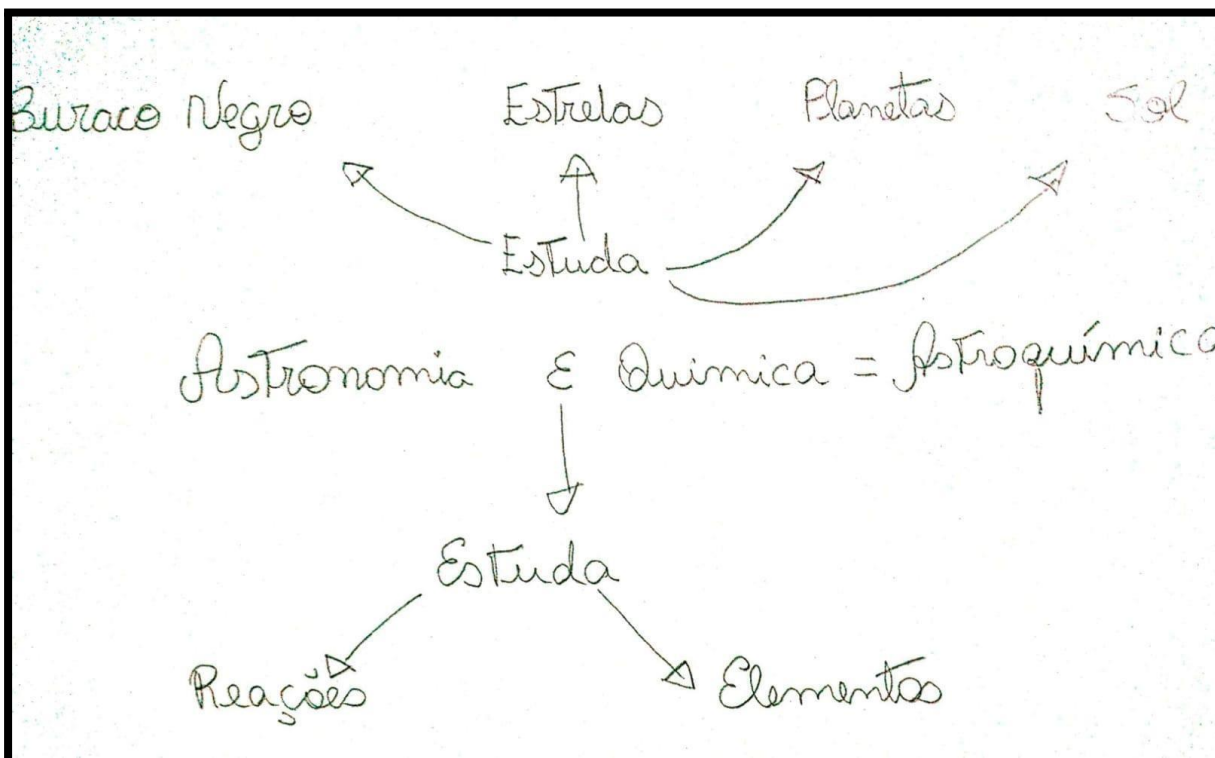 Buraco Negro Estrelas Planetas Sol
Estuda
Astronomia E Quimica = Astroquímica
Estuda
Reações Elementos